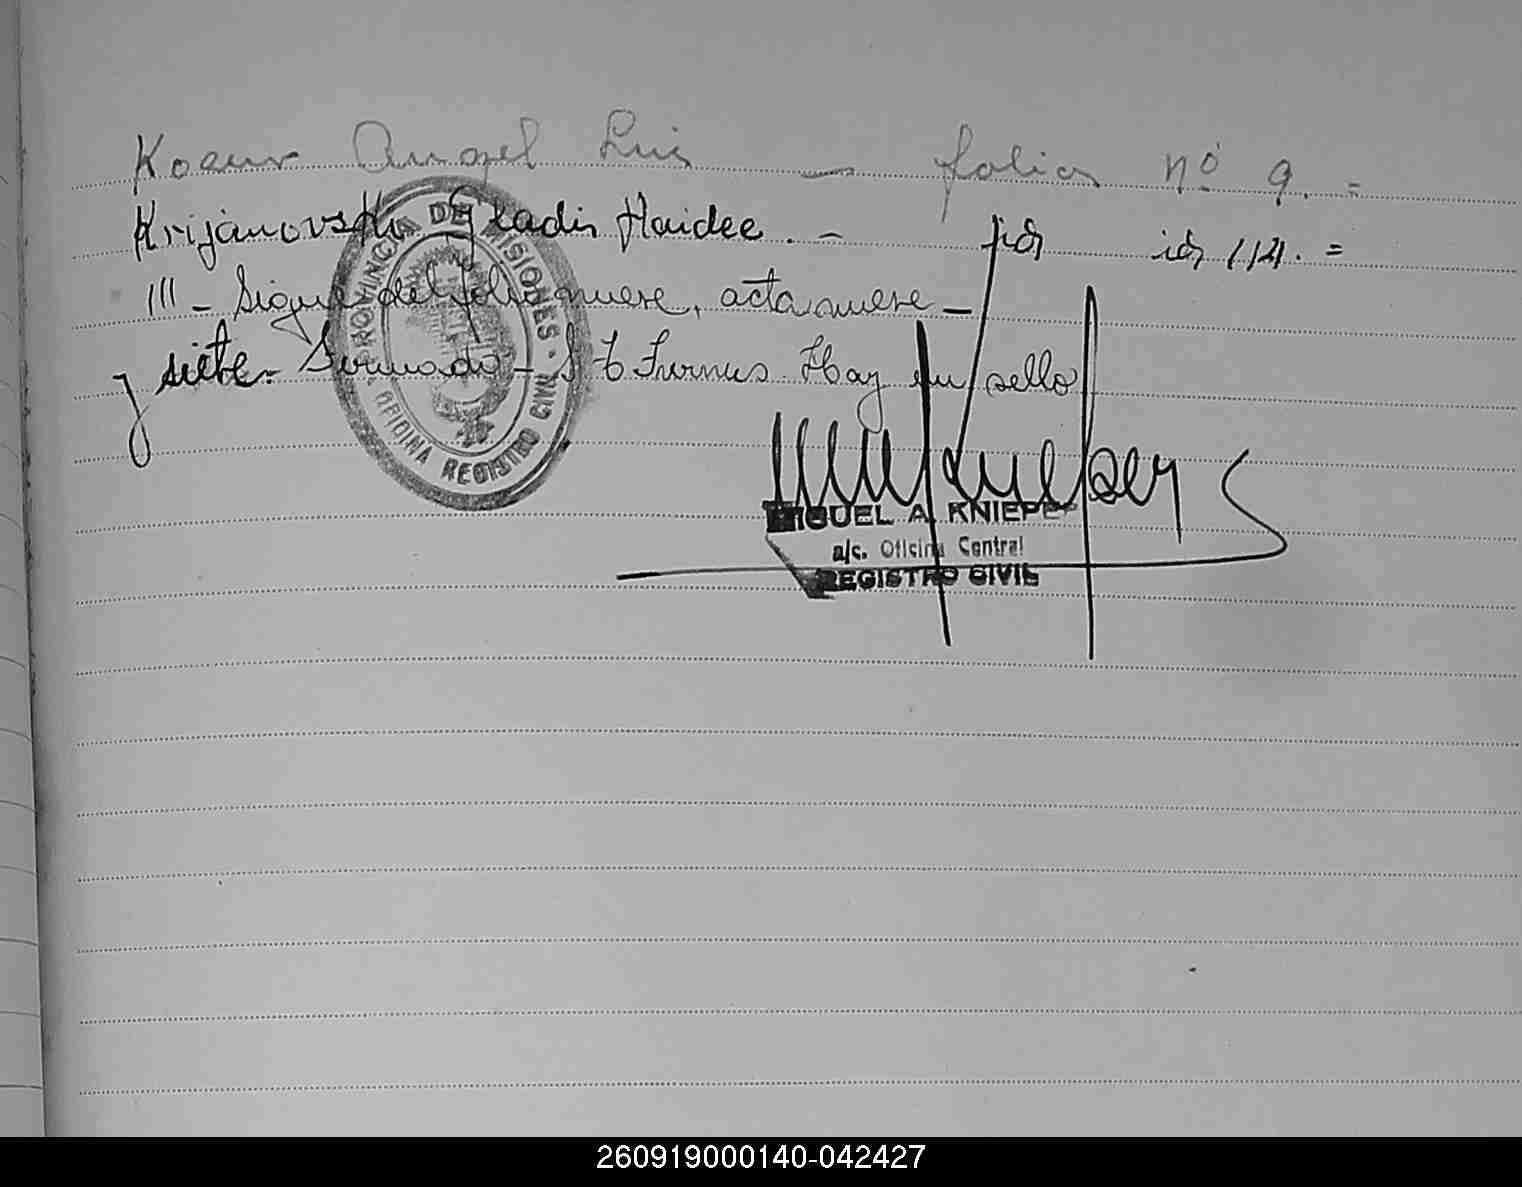 Angel Luis — folio nº 9. =
Krijanovski Gladis Haidee. — id id 114. =
/// - Sigue del folio nueve, acta nueve —
y siete. Firmado - Hay un sello
PROVINCIA DE MISIONES · OFICINA REGISTRO CIVIL
MIGUEL A. KNIEPE
a/c. Oficina Central
REGISTRO CIVIL
260919000140-042427